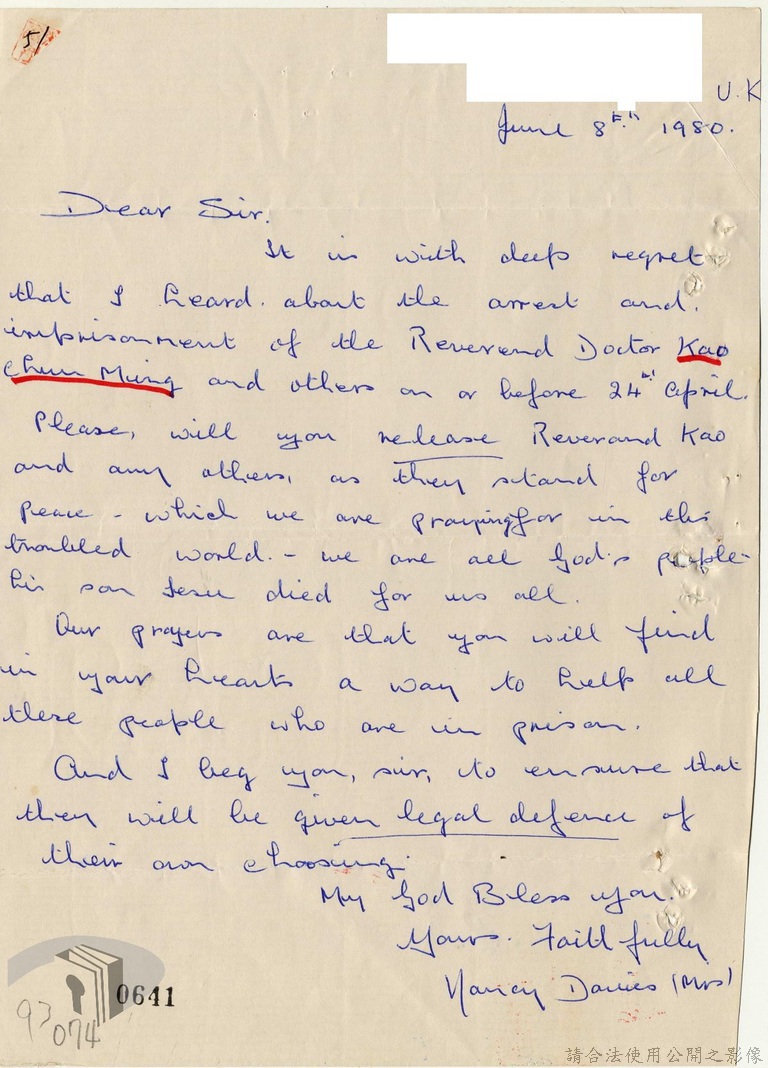 51
U.K
June 8th 1980.
Dear Sir.
It is with deep regret
that I heard. about the arrest and.
imprisonment of the Reverend Doctor Kao
Chun Ming and others on or before 24th April.
Please, will you release Reverand Kao
and any others, as they stand for
peace - which we are praying for in this
troubled world. - we are all God's people -
his son Jesu died for us all.
Our prayers are that you will find
in your hearts a way to help all
these people who are in prison.
And I beg you, sir, to ensure that
they will be given legal defence of
their own choosing.
My God Bless you.
Yours. Faithfully
Nancy Davies (Mrs)
0641
93
074
請合法使用公開之影像